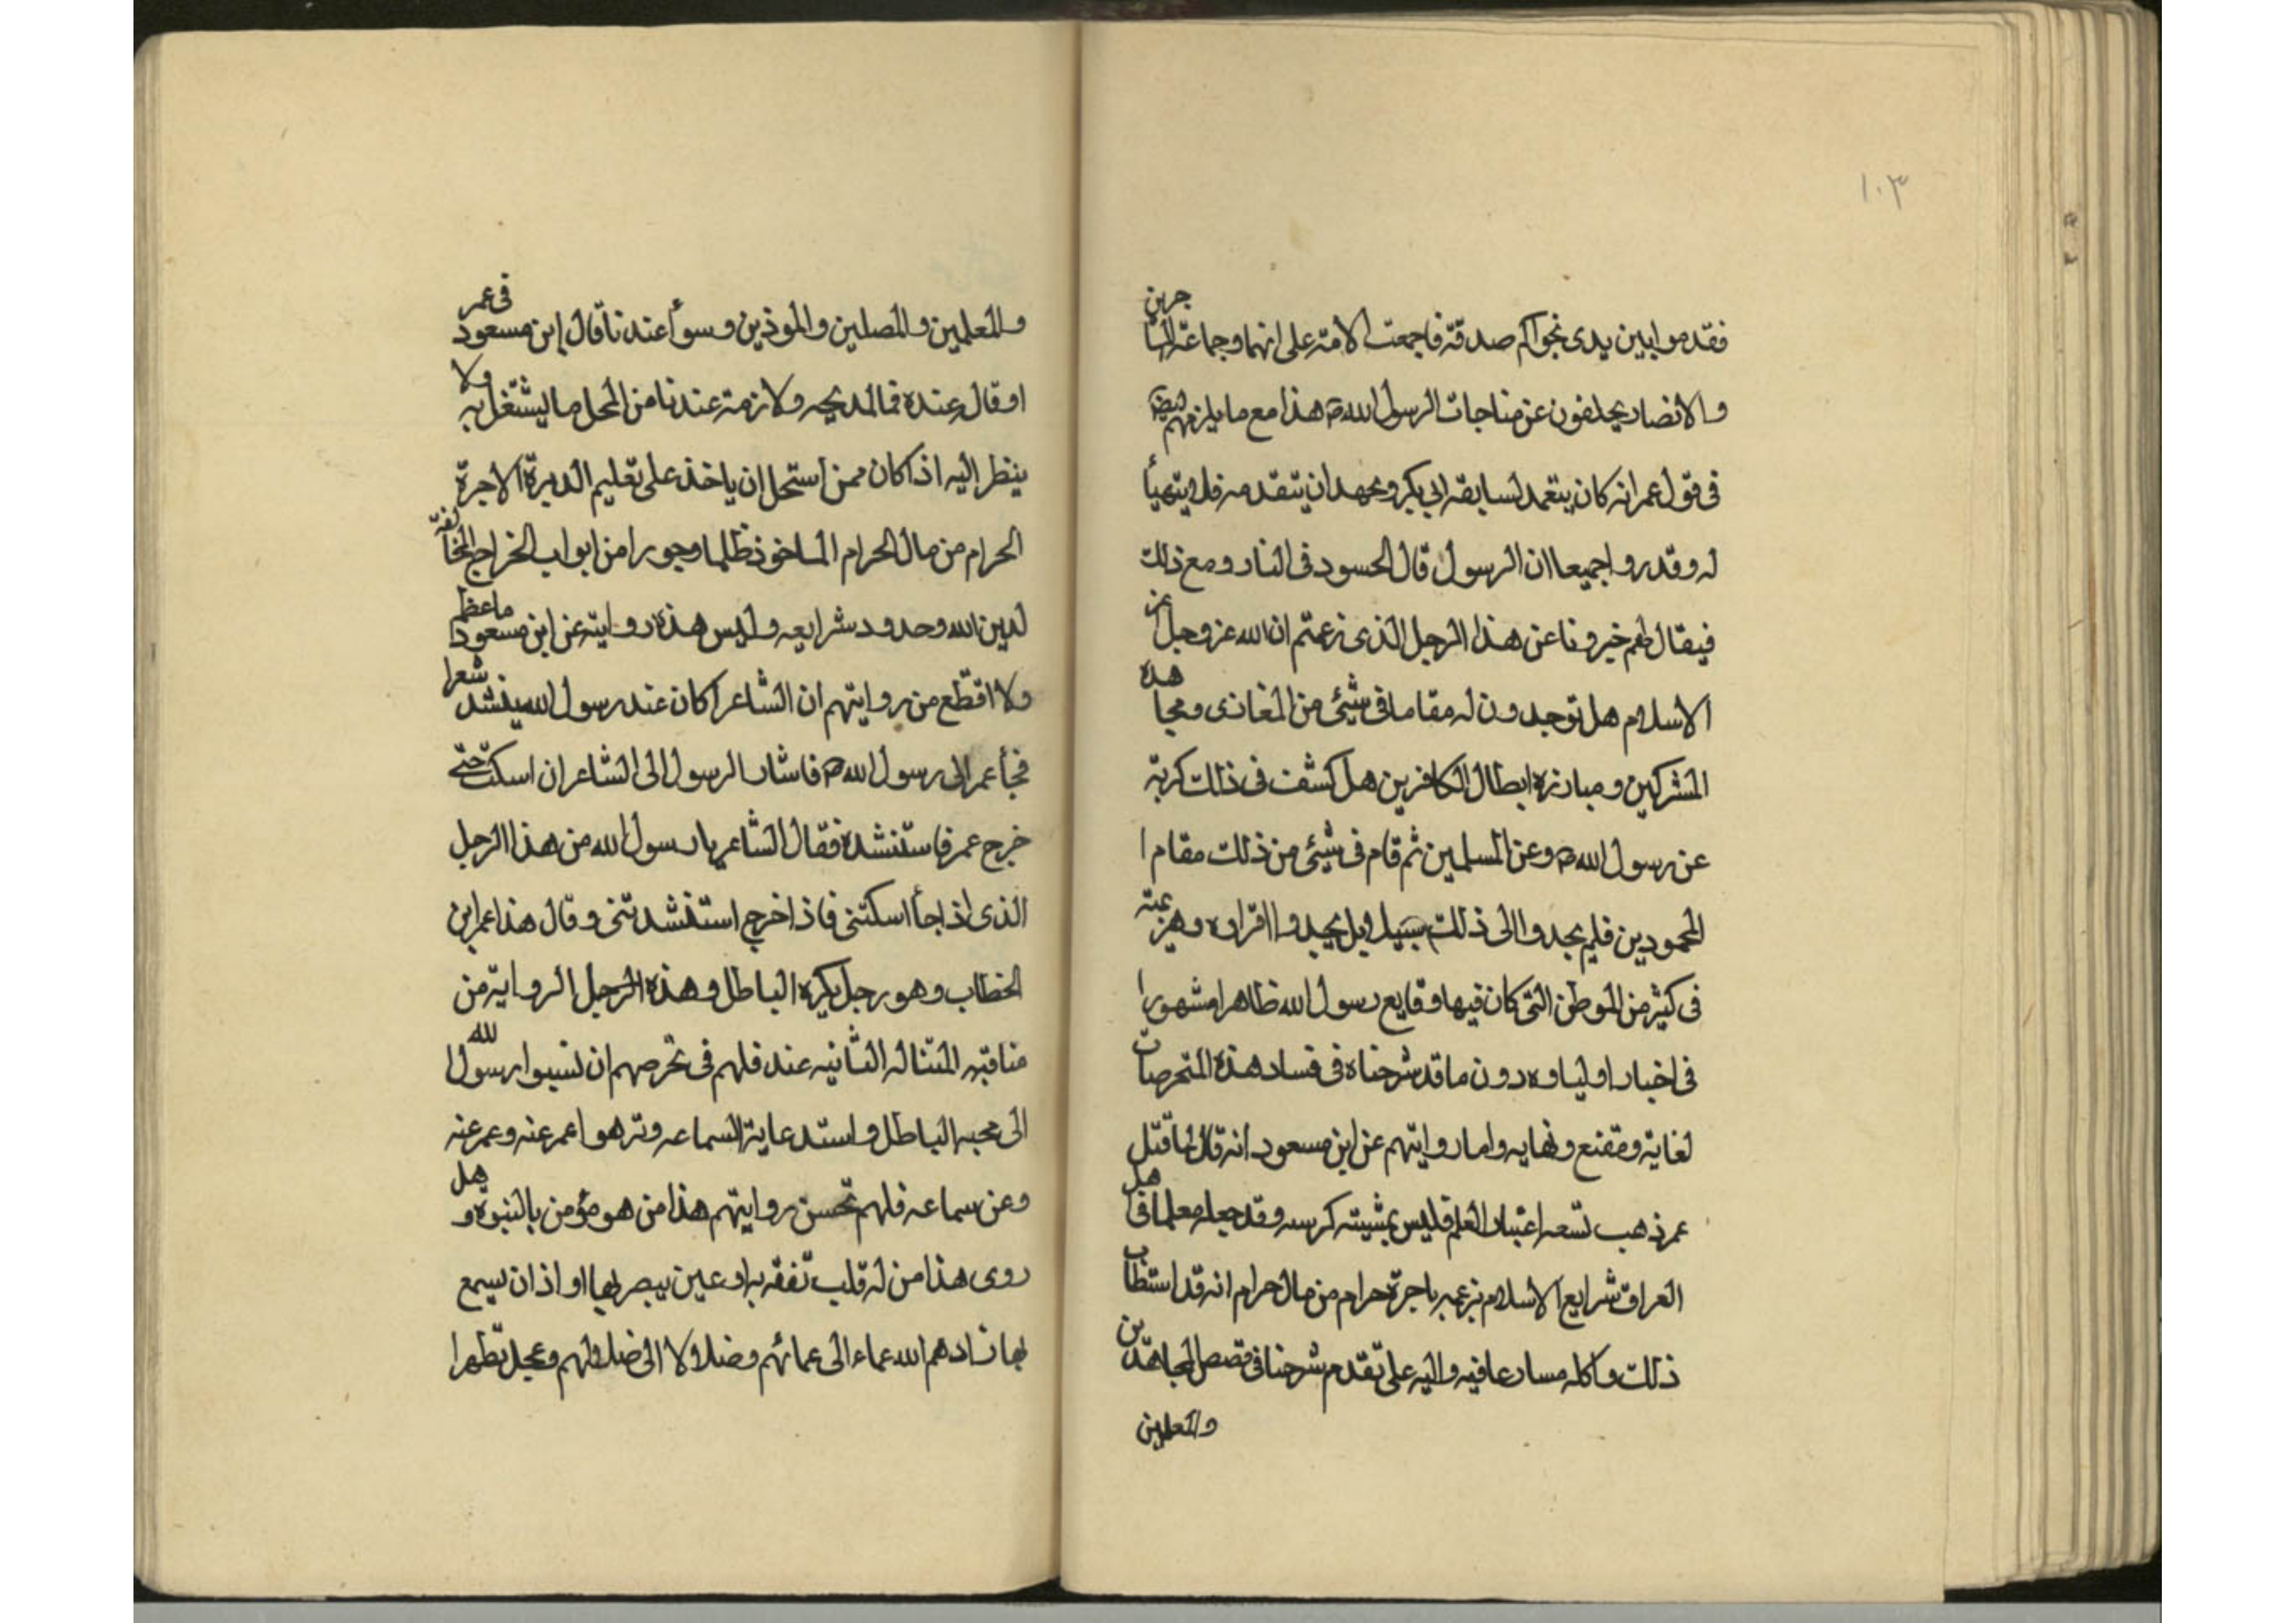 ١٠٣
فقدموا بين يدى نجواكم صدقة فاجمعت الامة على انهما وجماعة المهاجرين
والانصار يخلفون عن مناجات الرسول الله ص هذا مع ما يلزمهم
فى قول عمر انه كان يتعمد لسابقه ابى بكر ويجهد ان يتقدمه فلا يتهيأ
له وقد روا جميعا ان الرسول قال الحسود فى النار ومع ذلك
فيقال لهم خبرونا عن هذا الرجل الذى زعمتم ان الله عز وجل اعز
الاسلام هل توجدون له مقاما فى شيئ من المغازى ومجاهدة
المشركين ومبارزة ابطال الكافرين هل كشف فى ذلك كربة
عن رسول الله ص وعن المسلمين ثم قام فى شيئ من ذلك مقام ا
لمحمودين فلم يجدوا الى ذلك سبيلا بل يجدوا افراره وهزيمته
فى كثير من الموطن التى كان فيها وقايع رسول الله ظاهرا مشهورا
فى اخبار اولياوه دون ما قد شرحناه فى فساد هذه المتخرصات
لغاية ومقنع ونهايه واما روايتهم عن ابن مسعود انه قال لما قتل
عمر ذهب تسعه اعشار العلم فليس بمشيته كرسه وقد جعله معلما فى اهل
العراق شرايع الاسلام بزعمه باجرة حرام من مال حرام انه قد استطاب
ذلك واكله مسارعا فيه واليه على تقدم شرحنا فى قصص المجاهدين
والمعلمين
والمعلمين والمصلين والموذنين وسوأ عندنا قال ابن مسعود فى عمر
او قال عنده فما لمديحه ولا زمته عندنا من المحل ما ليشتغل به ولا
ينظر اليه اذا كان ممن استحل ان ياخذ على تعليم الديرة الاجرة
الحرام من مال الحرام الماخوذ ظلما وجورا من ابواب الخراج المخالفة
لدين الله وحدود شرايعه وليس هذه روايته عن ابن مسعود ما عظم
ولا اقطع من روايتهم ان الشاعرا كان عند رسول الله ينشد شعرا
فجأ عمر الى رسول الله ص فاشار الرسول الى الشاعر ان اسكت حتى
خرج عمر فاستنشده فقال الشاعر يا رسول الله من هذا الرجل
الذى اذا جأ اسكتنى فاذا خرج استنشدتنى وقال هذا عمر ابن
الخطاب وهو رجل يكره الباطل وهذه الرجل الرواية من
مناقبه المتناله الثانيه عندهم فى تخرصهم ان نسبوا رسول الله
الى محبه الباطل واستدعاية السماعه وترهوا عمر عنه وعمر عنه
وعن سماعه فلهم تحسن روايتهم هذا من هو مؤمن بالنبوة وهل
روى هذا من له قلب تفقه به او عين يبصر بها او اذان يسمع
بها زادهم الله عماء الى عمائهم وضلالا الى ضلالهم وعجل تطهرا